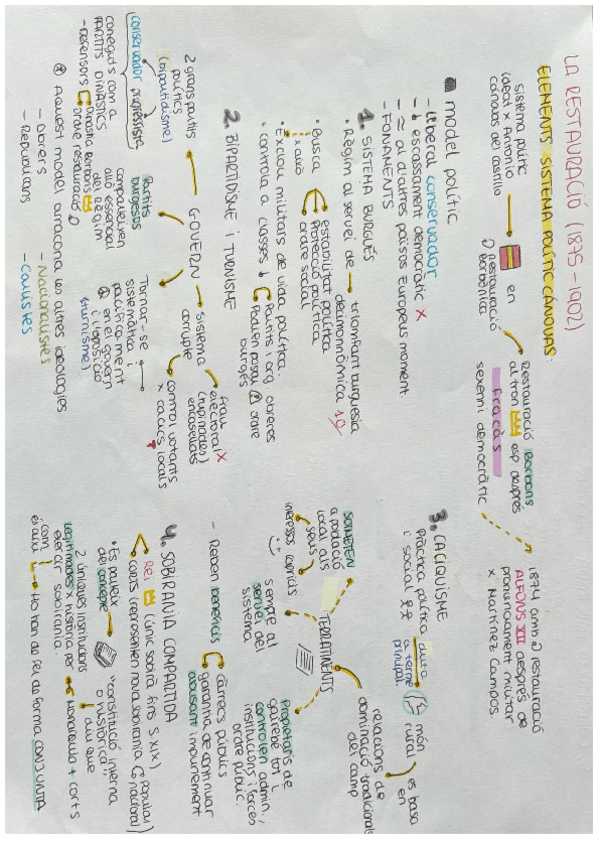 LA RESTAURACIÓ (1875-1902)
ELEMENTS SISTEMA POLÍTIC CÁNOVAS:
sistema polític
ideat x Antonio
Cánovas del Castillo
en
restauració
Borbònica
Restauració Borbons
al tron esp després
fracàs
sexenni democràtic
1874 amb restauració
ALFONS XII després de
pronunciament militar
x Martínez Campos
model polític
- Liberal conservador
- escassament democràtic X
- ≈ al d'altres països Europeus moment.
- FONAMENTS
1. SISTEMA BURGÈS
• Règim al servei de triomfant burgesia
• Busca
x això
estabilitat política
Protecció política
ordre social
• Exclou militars de vida política
• controla a classes ↓
Partits i org obreres
Poden posar ordre
burgès
2. BIPARTIDISME i TURNISME
GOVERN
2 grans partits
polítics
(bipartidisme)
conservador progressista
coneguts com a
PARTITS DINÀSTICS
- Defensors
Dinastia Borbons
ordre restauració
Partits
burgesos
comparteixen
allò essencial
del règim
Tornar-se
sistemàtica i
pacíficament
en el govern
i l'oposició
(turnisme)
sistema
corrupte
frau
electoral X
(tupinades)
encasellats
control votants
x cacics locals
Aquest model arracona les altres ideologies
- Obrers
- Republicans
- Nacionalistes
- Carlistes
3. CACIQUISME
Pràctica política
i social
duta
a terme
principal.
món
rural
es basa
en
relacions de
dominació tradicionals
del camp
TERRATINENTS
SOMETEN
a població
local als
seus
interessos
sempre al
servei del
sistema
Propietaris de
gairebé tot i
controlen admin.,
institucions i forces
ordre públic.
- Reben beneficis
Càrrecs públics
garantia de continuar
abusant impunement
4. SOBIRANIA COMPARTIDA
Rei (únic sobirà fins S.XIX)
Corts (representen nova sobirania popular/nacional)
• Es parteix
del concepte
"constitució interna
o històrica"
així que
2 úniques institucions
legitimades x història per
exercir sobirania
Monarquia + corts
com
és així
Ho han de fer de forma CONJUNTA